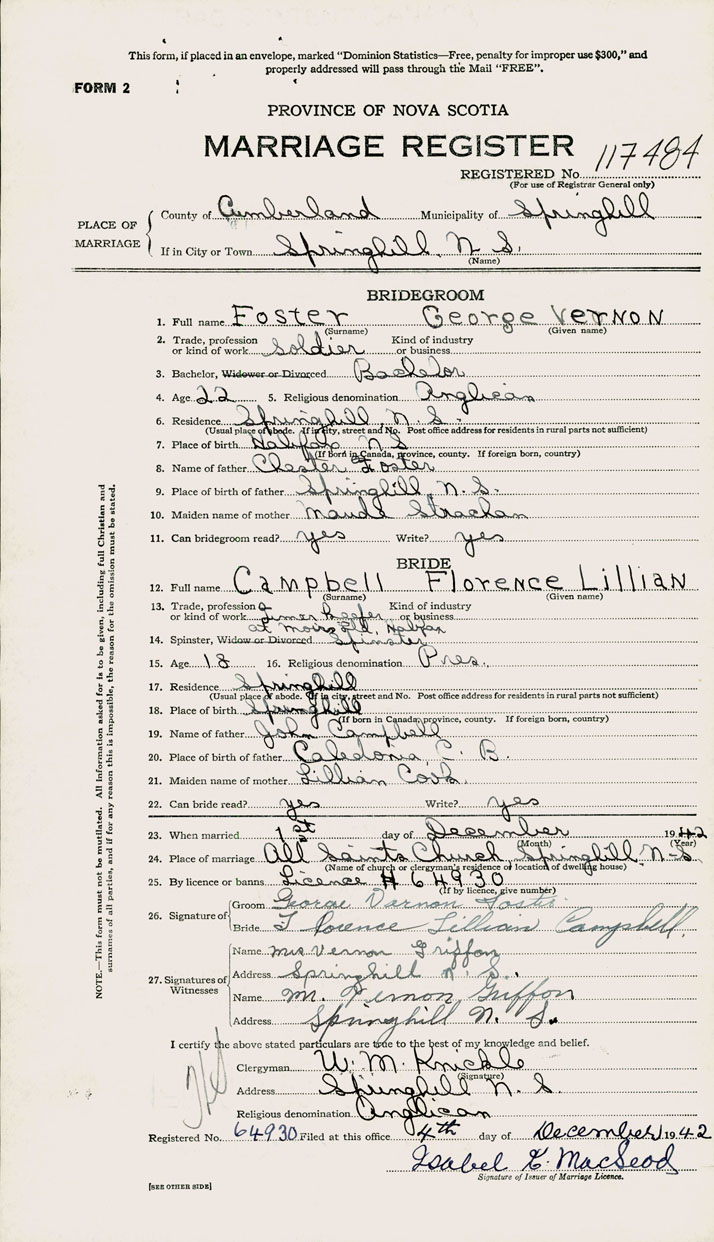 This form, if placed in an envelope, marked "Dominion Statistics—Free, penalty for improper use $300," and
properly addressed will pass through the Mail "FREE".
FORM 2
PROVINCE OF NOVA SCOTIA
MARRIAGE REGISTER
117484
REGISTERED No.
(For use of Registrar General only)
PLACE OF MARRIAGE
County of Cumberland Municipality of Springhill
If in City or Town Springhill, N S.
(Name)
BRIDEGROOM
1. Full name Foster George Vernon
(Surname) (Given name)
2. Trade, profession or kind of work Soldier Kind of industry or business
3. Bachelor, Widower or Divorced Bachelor
4. Age 22 5. Religious denomination Anglican
6. Residence Springhill, N. S.
(Usual place of abode. If in city, street and No. Post office address for residents in rural parts not sufficient)
7. Place of birth Halifax N S
(If born in Canada, province, county. If foreign born, country)
8. Name of father Chester Foster
9. Place of birth of father Springhill, N. S.
10. Maiden name of mother Maude Strachan
11. Can bridegroom read? yes Write? yes
BRIDE
12. Full name Campbell Florence Lillian
(Surname) (Given name)
13. Trade, profession or kind of work Kind of industry or business
at Halifax
14. Spinster, Widow or Divorced Spinster
15. Age 18 16. Religious denomination Pres.
17. Residence Springhill
(Usual place of abode. If in city, street and No. Post office address for residents in rural parts not sufficient)
18. Place of birth Springhill
(If born in Canada, province, county. If foreign born, country)
19. Name of father John Campbell
20. Place of birth of father Caledonia, C. B.
21. Maiden name of mother Lillian Cook
22. Can bride read? yes Write? yes
23. When married 1st day of December 1942
(Month) (Year)
24. Place of marriage All Saints Church, Springhill N-S.
(Name of church or clergyman's residence or location of dwelling house)
25. By licence or banns Licence # 64930
(If by licence, give number)
26. Signature of
Groom George Vernon Foster
Bride Florence Lillian Campbell.
27. Signatures of Witnesses
Name Mrs Vernon Griffon
Address Springhill N. S.
Name M. Vernon Griffon
Address Springhill N. S.
I certify the above stated particulars are true to the best of my knowledge and belief.
Clergyman W. M. Knickle
(Signature)
Address Springhill N. S.
Religious denomination Anglican
Registered No. 64930 Filed at this office 4th day of December 1942
Isabel K. MacLeod
Signature of Issuer of Marriage Licence.
[SEE OTHER SIDE]
NOTE.—This form must not be mutilated. All information asked for is to be given, including full Christian and
surnames of all parties, and if for any reason this is impossible, the reason for the omission must be stated.